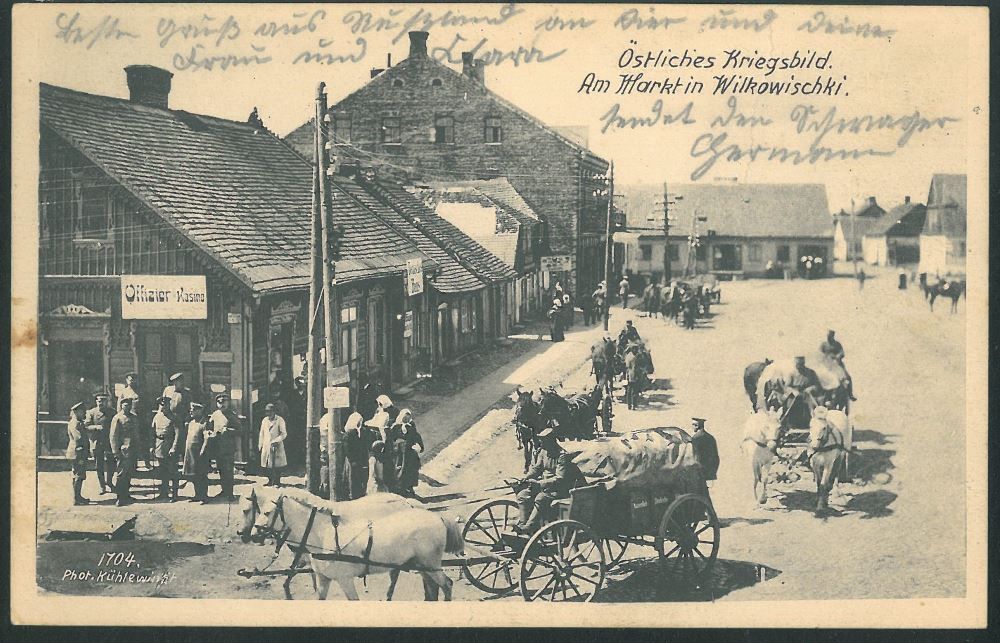 Beste Gruß aus Rußland an Dier und deine
Frau und Clara
Östliches Kriegsbild.
Am Markt in Wilkowischki.
sendet den Schwager
Hermann
Offizier-Kasino
1704.
Phot. Kühlewindt